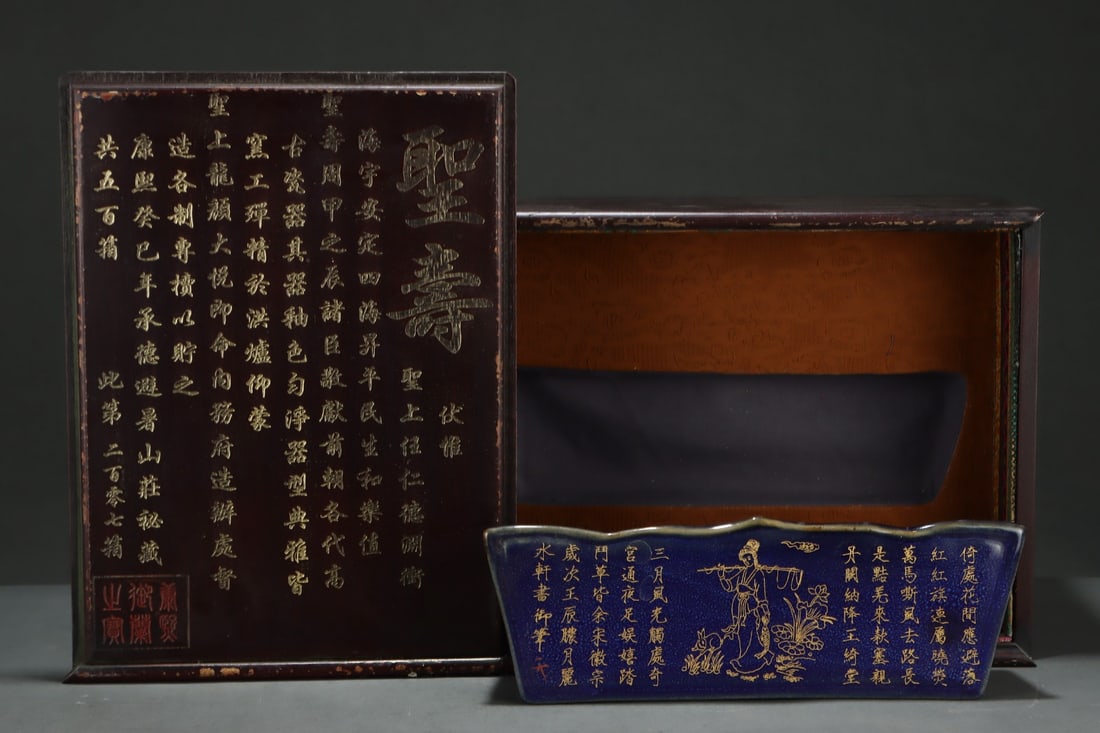 聖壽
伏惟
聖上任仁德淵衡
海宇安定四海昇平民生和樂值
聖壽周甲之辰諸臣敬獻前朝各代高
古瓷器其器釉色勻淨器型典雅皆
窯工殫精於洪爐仰蒙
聖上龍顏大悅即命內務府造辦處督
造各制專櫝以貯之
康熙癸巳年承德避暑山莊秘藏
共五百箱 此第二百零七箱
康熙御覽之寶
倚處花間應避落
紅紅旌連屬曉
萬馬嘶風去路長
是點羌來款塞親
丹闕納降王綺堂
三月風光觸處奇
宮通夜足娛嬉踏
鬥草皆余宋徽宗
歲次壬辰朦月麗
水軒書御筆